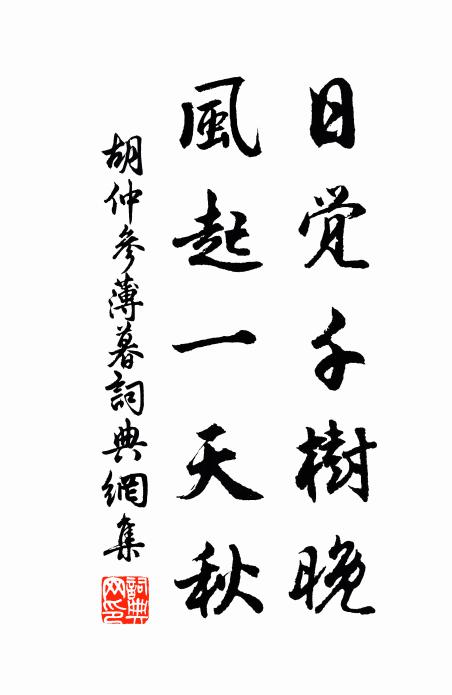 日觉千樹晚
風起一天秋
胡仲參薄暮詞典網集